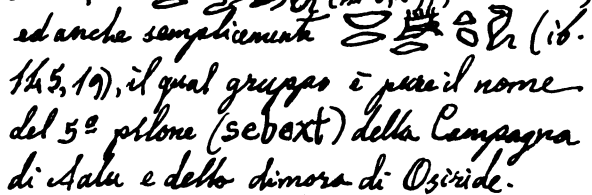 ed anche semplicemente (ib.
145,19), il qual gruppo è pure il nome
del 5º pilone (sebext) della Campagna
di Aalu e dello dimora di Osiride.